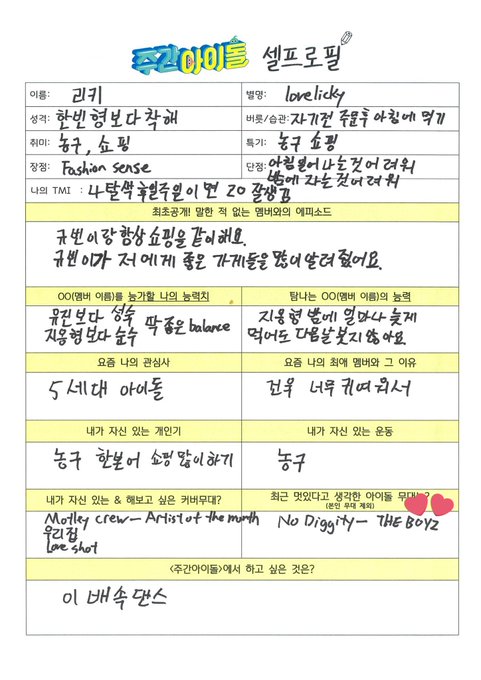 주간아이돌 셀프로필
이름: 리키
별명: lovelicky
성격: 한빈 형보다 착해
버릇/습관: 자기전 주문후 아침에 먹기
취미: 농구, 쇼핑
특기: 농구 쇼핑
장점: Fashion sense
단점: 아침일어나는것 어려워
밤에 자는것 어려워
나의 TMI : 4탈색 후 일주일이면 20 잘생김
최초공개! 말한 적 없는 멤버와의 에피소드
규빈이랑 항상 쇼핑을 같이 해요.
규빈이가 저에게 좋은 가게들을 많이 알려줬어요.
OO(멤버 이름)를 능가할 나의 능력치
유진보다 성숙
지웅형보다 순수 딱 좋은 balance
탐나는 OO(멤버 이름)의 능력
지웅형 밤에 얼마나 늦게
먹어도 다음날 붓지 않아요.
요즘 나의 관심사
5세대 아이돌
요즘 나의 최애 멤버와 그 이유
건욱 너무 귀여워서
내가 자신 있는 개인기
농구 한본어 쇼핑 많이 하기
내가 자신 있는 운동
농구
내가 자신 있는 & 해보고 싶은 커버무대?
Motley crew - Artist of the month
우리집
Love shot
최근 멋있다고 생각한 아이돌 무대는?
(본인 무대 제외)
No Diggity - THE BOYZ
<주간아이돌>에서 하고 싶은 것은?
이 배속 댄스